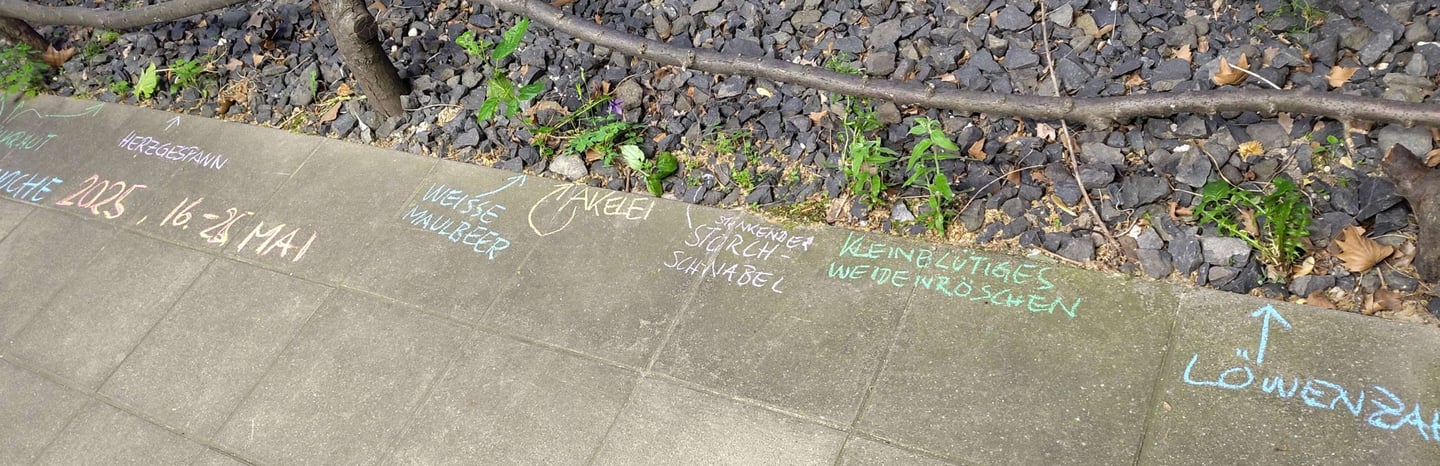 HERZGESPANN
2025, 16.-25 MAI
WEISSE
MAULBEER
AKELEI
STINKENDER
STORCH-
SCHNABEL
KLEINBLÜTIGES
WEIDENRÖSCHEN
LÖWENZA